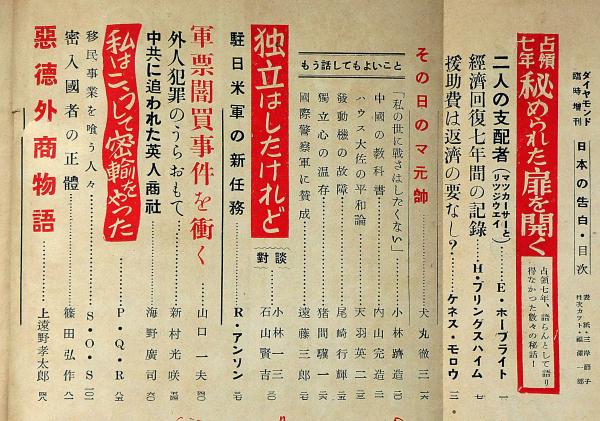 ダイヤモンド
臨時増刊
日本の告白・目次
占領
七年
秘められた扉を開く
占領七年、語らんとして語り
得なかつた数々の秘話！
二人の支配者(マツカーサーと)
(マツジウエイ)
E・ホーブライト
經濟回復七年間の記錄
H・ブリングスハイム 七
援助費は返濟の要なし？
ケネス・モロウ
その日のマ元帥
犬丸徹三 一六
もう話してもよいこと
「私の世に戰さはしたくない」
小林躋造
中國の教科書
内山完造
ハウス大佐の平和論
天羽英二
發動機の故障
尾崎行輝
獨立心の温存
猪間驥一
國際警察軍に賛成
遠藤三郎
独立はしたけれど
對談
小林一三
石山賢吉
駐日米軍の新任務
R・アンソン
軍票闇買事件を衝く
山口一夫
外人犯罪のうらおもて
新村光咲
中共に追われた英人商社
海野廣司
私はこうして密輸をやつた
P・Q・R 八五
移民事業を喰う人々
S・O・S 一〇一
密入國者の正體
篠田弘作 八一
惡德外商物語
上遠野孝太郎